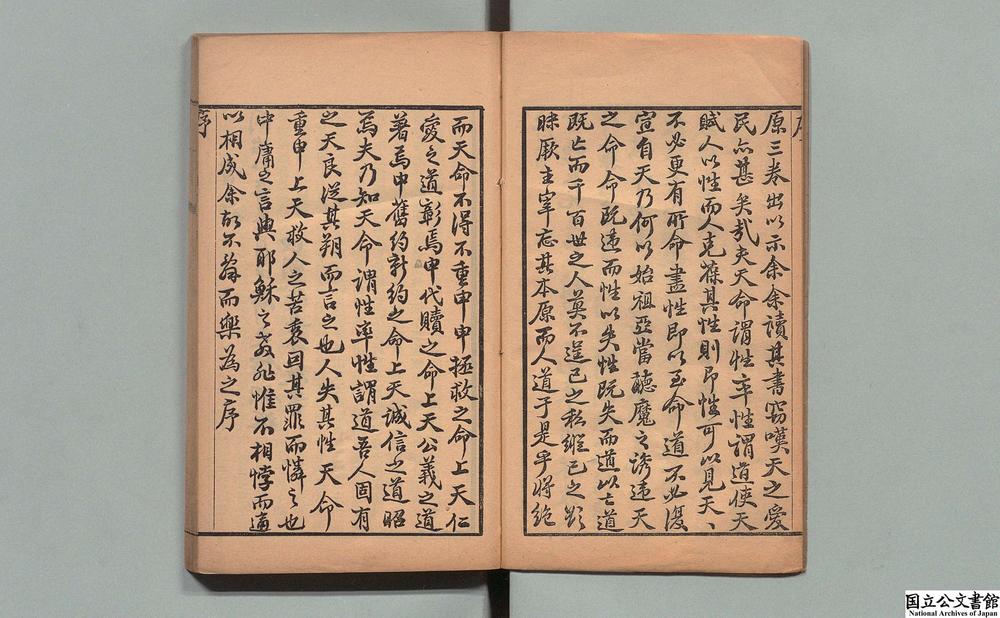 原三卷出以示余余讀其書竊嘆天之愛
民亦甚矣哉夫天命謂性率性謂道使天
賦人以性而人克葆其性則即性可以見天、
不必更有所命盡性即以至命道不必復
宣自天乃何以始祖亞當聽魔之誘違天
之命命既違而性以失性既失而道以亡道
既亡而千百世之人莫不逞己之私縱己之欲
昧厥主宰忘其本原而人道于是乎將絕
而天命不得不重申申拯救之命上天仁
愛之道彰焉申代贖之命上天公義之道
著焉申舊約新約之命上天誠信之道昭
焉夫乃知天命謂性率性謂道吾人固有
之天良從其朔而言之也人失其性天命
重申上天救人之苦衷因其罪而憐之也
中庸之言與耶穌之教非惟不相悖而適
以相成余故不辭而樂為之序
序
序
国立公文書館
National Archives of Japan